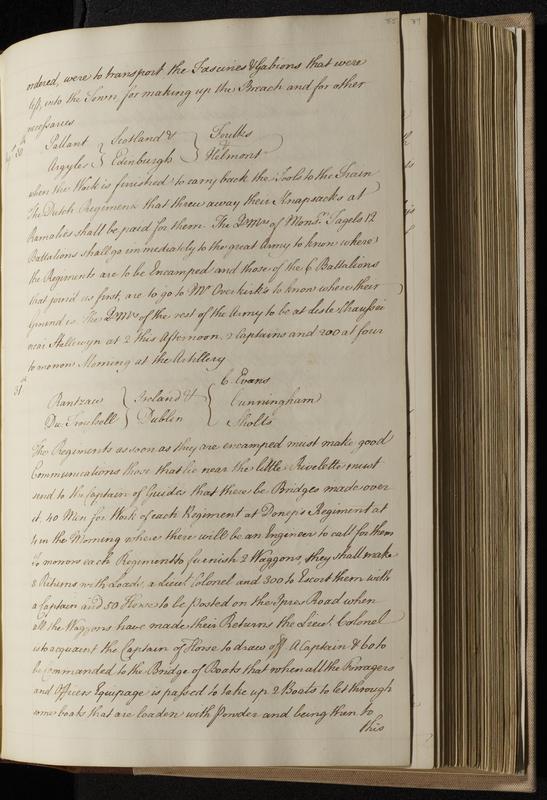 85 87
ordered, were to transport the Fascines & Gabions that were
left, into the Town for making up the Breach and for other
necessaries
30th Pallant Scotland & Foulks
Argyle Edenburgh Helmont
when the Work is finished to carry back the Tools to the Train
The Dutch Regiments that threw away their Knapsacks at
Ramalies shall be paid for them. The QrMrs of Monsr. Tagels 12
Battalions shall go immediately to the great Army to know where
the Regiments are to be Encamped and those of the 6 Battalions
that joind us first, are to go to Mr Overkirk's to know where their
Ground is. The QrMrs of the rest of the Army to be at de
near Hallewyn at 2 this Afternoon. 2 Captains and 200 at four
to morrow Morning at the Artillery
31st C. Evans
Rantzaw Ireland & Cunningham
Du Troulsell Dublin Sholts
The Regiments as soon as they are encamped must make good
Communications those that lie near the little Rivelette must
send to the Captain of Guides that there be Bridges made over
it, 40 Men for Work of each Regiment at Donep's Regiment at
4 in the Morning where there will be an Engineer to call for them
To morrow each Regiment to furnish 2 Waggons, they shall make
2 Returns with Loads, a Lieut Colonel and 300 to Escort them with
a Captain and 50 Horse to be posted on the Ipres Road when
all the Waggons have made their Returns the Lieut. Colonel
is to acquaint the Captain of Horse to draw off. A Captain & 60 to
be Commanded to the Bridge of Boats that when all the Forragers
and Officers Equipage is passed to take up 2 Boats to let through
some boats that are loaden with Powder and being then to
this